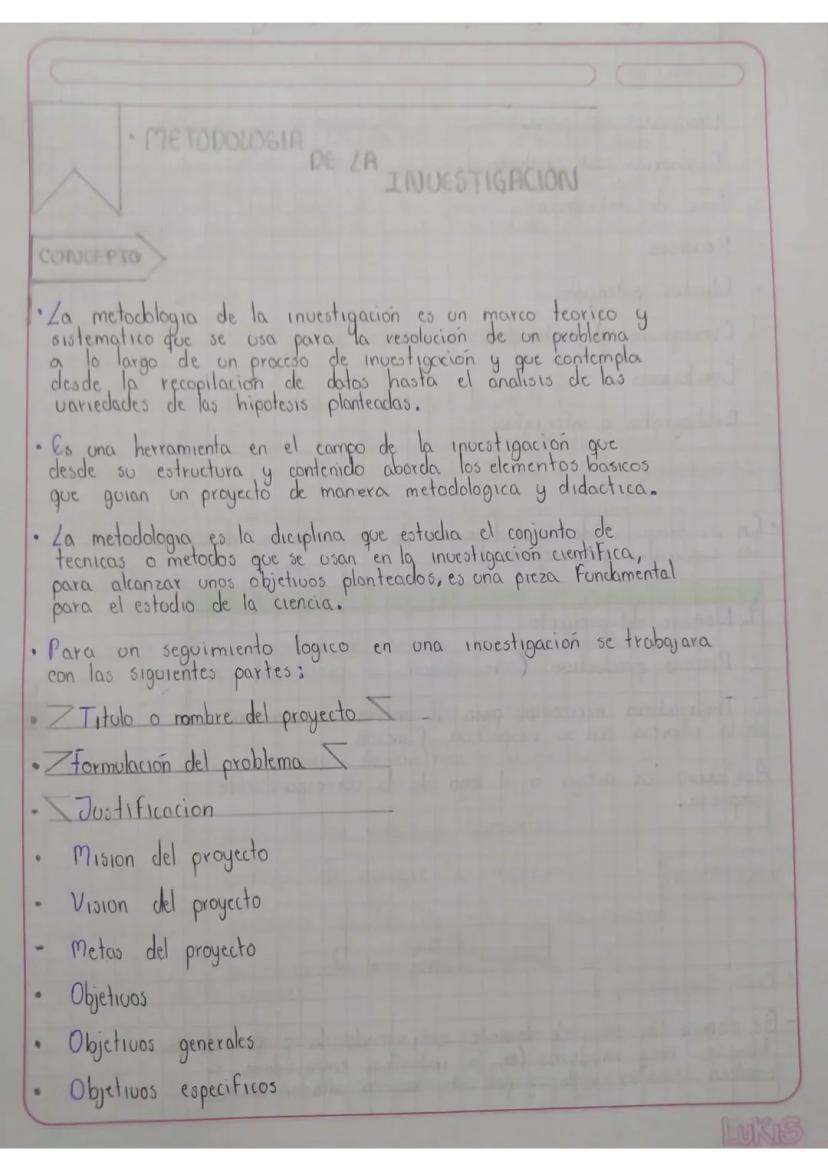 · METODOLOGIA
DE LA
INVESTIGACION
CONCEPTO
· La metodologia de la investigación es un marco teorico y
sistematico que se usa para la resolución de un problema
a lo largo de un proceso de investigación y que contempla
desde la recopilacion de datos hasta el analisis de las
variedades de las hipotesis planteadas.
· Es una herramienta en el campo de la investigación que
desde su estructura y contenido aborda los elementos basicos
que guian un proyecto de manera metodologica y didactica.
· La metodologia es la diciplina que estudia el conjunto de
tecnicas o metodos que se usan en la investigación cientifica,
para alcanzar unos objetivos planteados, es una pieza fundamental
para el estudio de la ciencia.
· Para un seguimiento logico en una investigación se trabajara
con las siguientes partes:
· Titulo o nombre del proyecto
· formulación del problema
· Justificacion
· Mision del proyecto
· Vision del proyecto
- Metas del proyecto
· Objetivos
· Objetivos generales
· Objetivos especificos
LUKIS